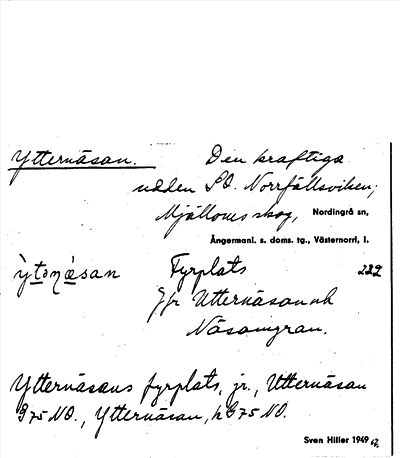 Ytternäsan.
Den kraftiga
udden S.O. Norrfällsviken;
Mjälloms skog, Nordingrå sn,
Ångermanl. s. doms. tg., Västernorrl. l.
Fyrplats 282
Jfr Utternäsan och
Näsangran.
Ytternäsans fyrplats, jr., Utternäsan
G75 NO., Ytternäsan, k G75 NO.
Sven Hiller 1949